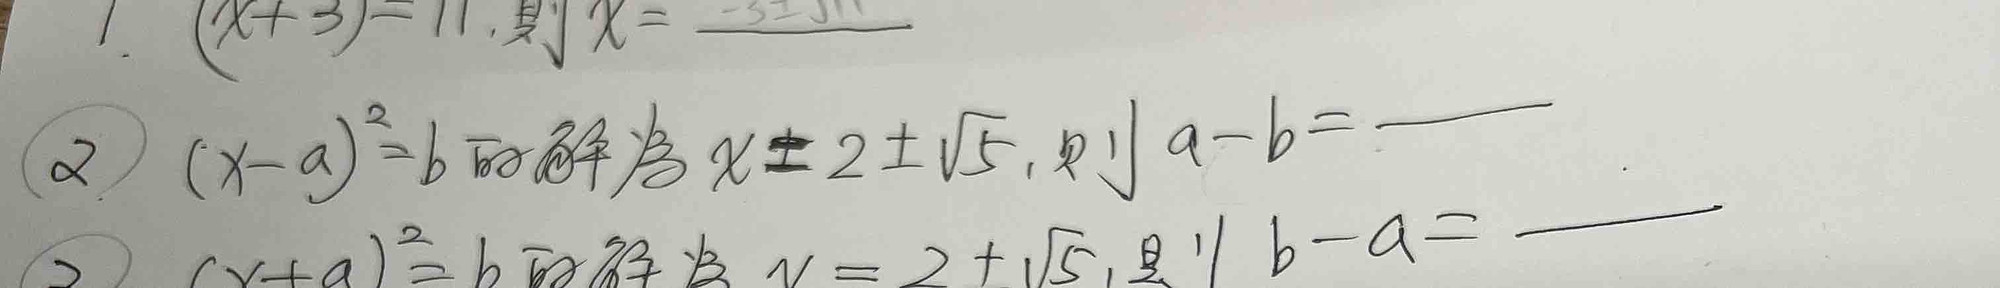 1. (x+3)=11.则x= -3±√11
② (x-a)²=b的解为x=2±√5,则a-b=
(x+a)²=b的解为x=2±√5,则b-a=